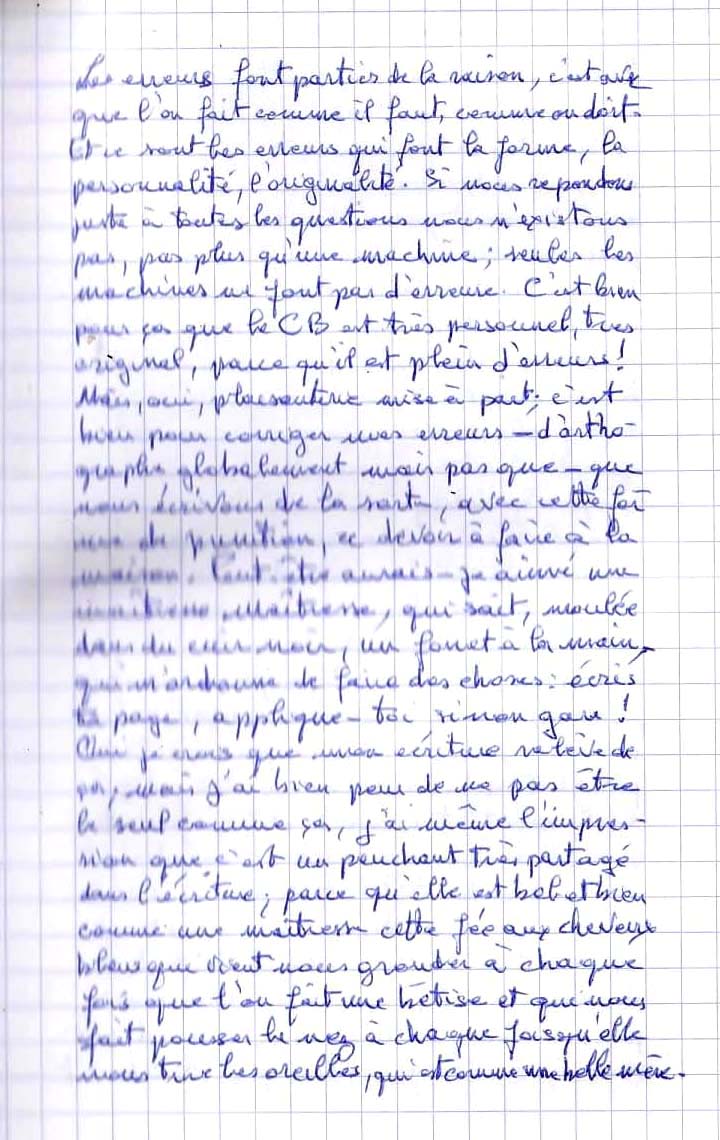 Les erreurs font parties de la raison, c'est ave
que l'on fait comme il faut, comme on doit.
Et ce sont les erreurs qui font la forme, la
personnalité, l'originalité. Si nous repondons
juste à toutes les questions nous n'existons
pas, pas plus qu'une machine ; seules les
machines ne font pas d'erreurs. C'est bien
pour ça que le CB est très personnel, très
original, parce qu'il est plein d'erreurs !
Mais, oui, plaisanterie mise à part ; c'est
bien pour corriger mes erreurs – d'ortho-
graphe globalement mais pas que – que
nous écrivons de la sorte, avec cette
de punition, ce devoir à faire à la
maison. Peut-être aurais-je aimé une
maîtresse, qui sait, moulée
dans du cuir noir, un fouet à la main,
qui m'ordonne de faire des choses : écris
ta page, applique-toi sinon gare !
Oui je crois que mon écriture relève de
ça, mais j'ai bien peur de ne pas être
le seul comme ça, j'ai même l'impres-
sion que c'est un penchant très partagé
dans l'écriture ; parce qu'elle est bel et bien
comme une maîtresse cette fée aux cheveux
bleus qui vient nous gronder à chaque
fois que l'on fait une bêtise et qui nous
fait pousser le nez à chaque fois qu'elle
nous tire les oreilles, qui est comme une belle mère.